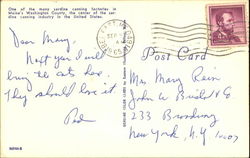 One of the many sardine canning factories in
Maine's Washington County, the center of the sar-
dine canning industry in the United States.
Dear Mary,
Next year I will
bring the cats here.
They should love it
Post Card
Mrs. Mary Rein
John W.
233 Broadway
New York, N.Y. 10007